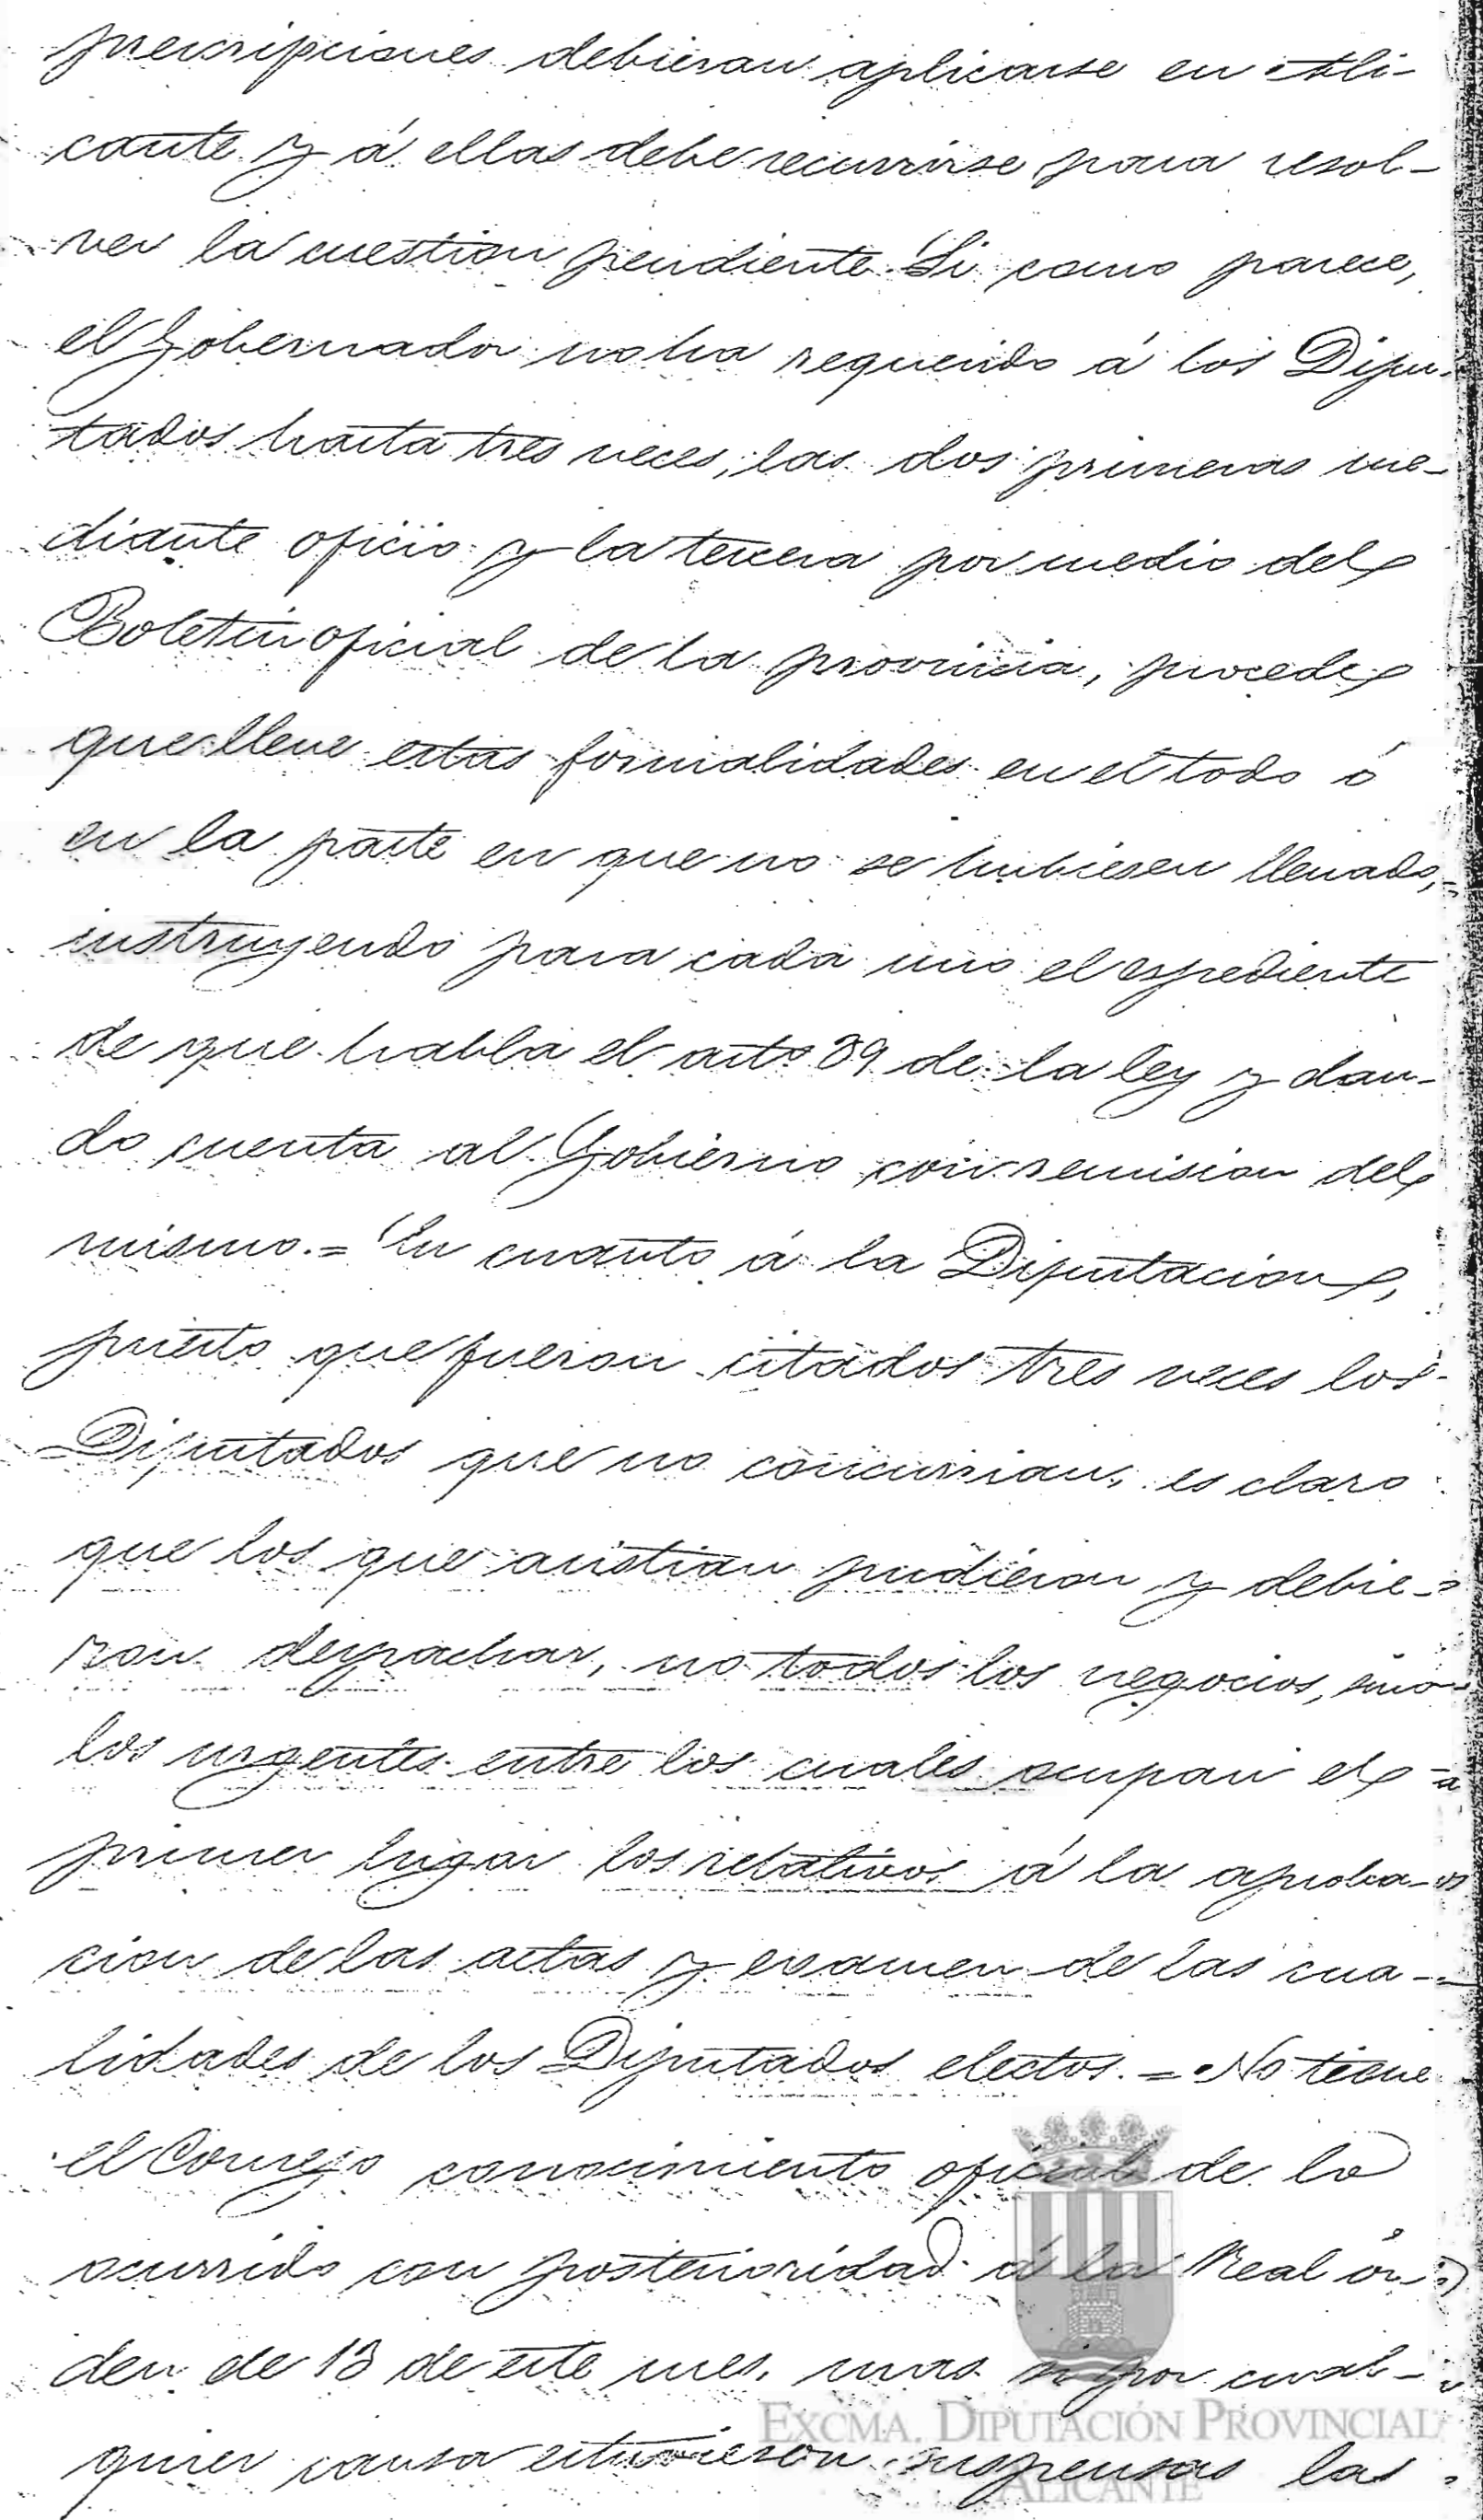 prescripciones debieran aplicarse en Ali-
cante y á ellas debe recurrirse para resol-
ver la cuestion pendiente. Si como parece,
el Gobernador no ha requerido á los Dipu-
tados hasta tres veces, las dos primeras me-
diante oficio y la tercera por medio del
Boletin oficial de la provincia, procede
que llene estas formalidades en el todo ó
en la parte en que no se hubiesen llenado,
instruyendo para cada uno el espediente
de que habla el artº 39 de la ley y dan-
do cuenta al Gobierno con remision del
mismo.= En cuanto á la Diputacion,
puesto que fueron citados tres veces los
Diputados que no concurrian, es claro
que los que asistian pudieron y debie-
ron despachar, no todos los negocios, sino
los urgentes entre los cuales ocupan el
primer lugar los relativos á la aproba-
cion de las actas y examen de las cua-
lidades de los Diputados electos.= No tiene
el Consejo conocimiento oficial de lo
ocurrido con posterioridad á la Real ór-
den de 13 de este mes, mas si por cual-
quier causa estuviesen suspensas las
EXCMA. DIPUTACIÓN PROVINCIAL
ALICANTE